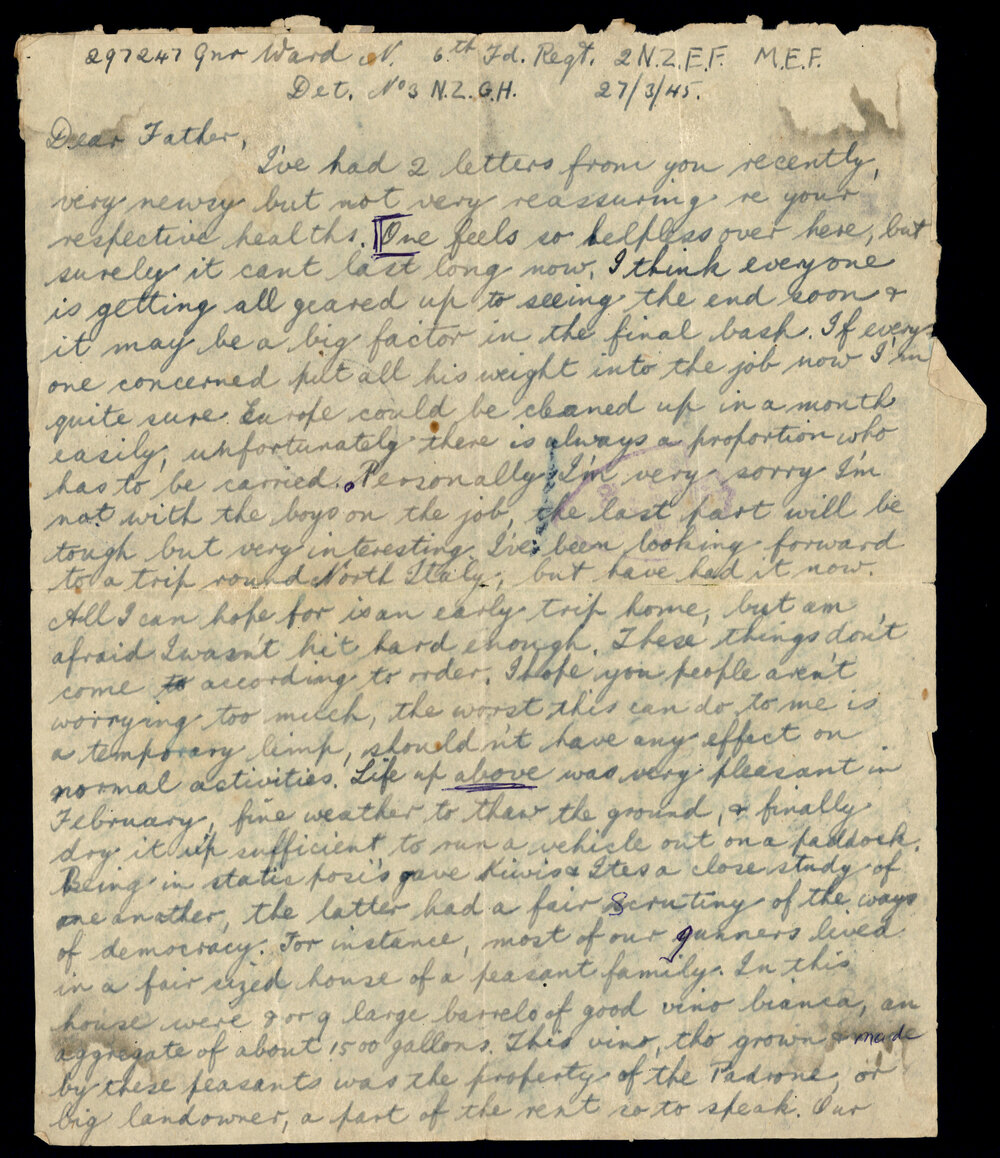 297247 Gnr Ward N. 6th Fd. Regt. 2 N.Z.E.F. M.E.F.
Det. No 3 N.Z.G.H. 27/3/45.
Dear Father,
I've had 2 letters from you recently,
very newsy but not very reassuring re your
respective healths. One feels so helpless over here, but
surely it cant last long now. I think everyone
is getting all geared up to seeing the end soon &
it may be a big factor in the final bash. If every
one concerned put all his weight into the job now I'm
quite sure Europe could be cleaned up in a month
easily, unfortunately there is always a proportion who
has to be carried. Personally I'm very sorry I'm
not with the boys on the job, the last part will be
tough but very interesting. I've been looking forward
to a trip round North Italy, but have had it now.
All I can hope for is an early trip home, but am
afraid I wasn't hit hard enough. These things don't
come to according to order. I hope you people aren't
worrying too much, the worst this can do to me is
a temporary limp, shouldn't have any effect on
normal activities. Life up above was very pleasant in
February, fine weather to thaw the ground, & finally
dry it up sufficient to run a vehicle out on a paddock.
Being in static posi's gave Kiwis & Ites a close study of
one another, the latter had a fair scrutiny of the ways
of democracy. For instance, most of our gunners lived
in a fair sized house of a peasant family. In this
house were 8 or 9 large barrels of good vino bianca, an
aggregate of about 1500 gallons. This vino, tho grown & made
by these peasants was the property of the Padrone, or
big landowner, a part of the rent so to speak. Our